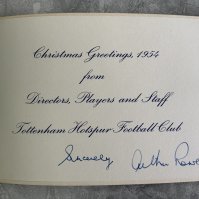 Christmas Greetings, 1954
from
Directors, Players and Staff
Tottenham Hotspur Football Club
Sincerely Arthur Rowe